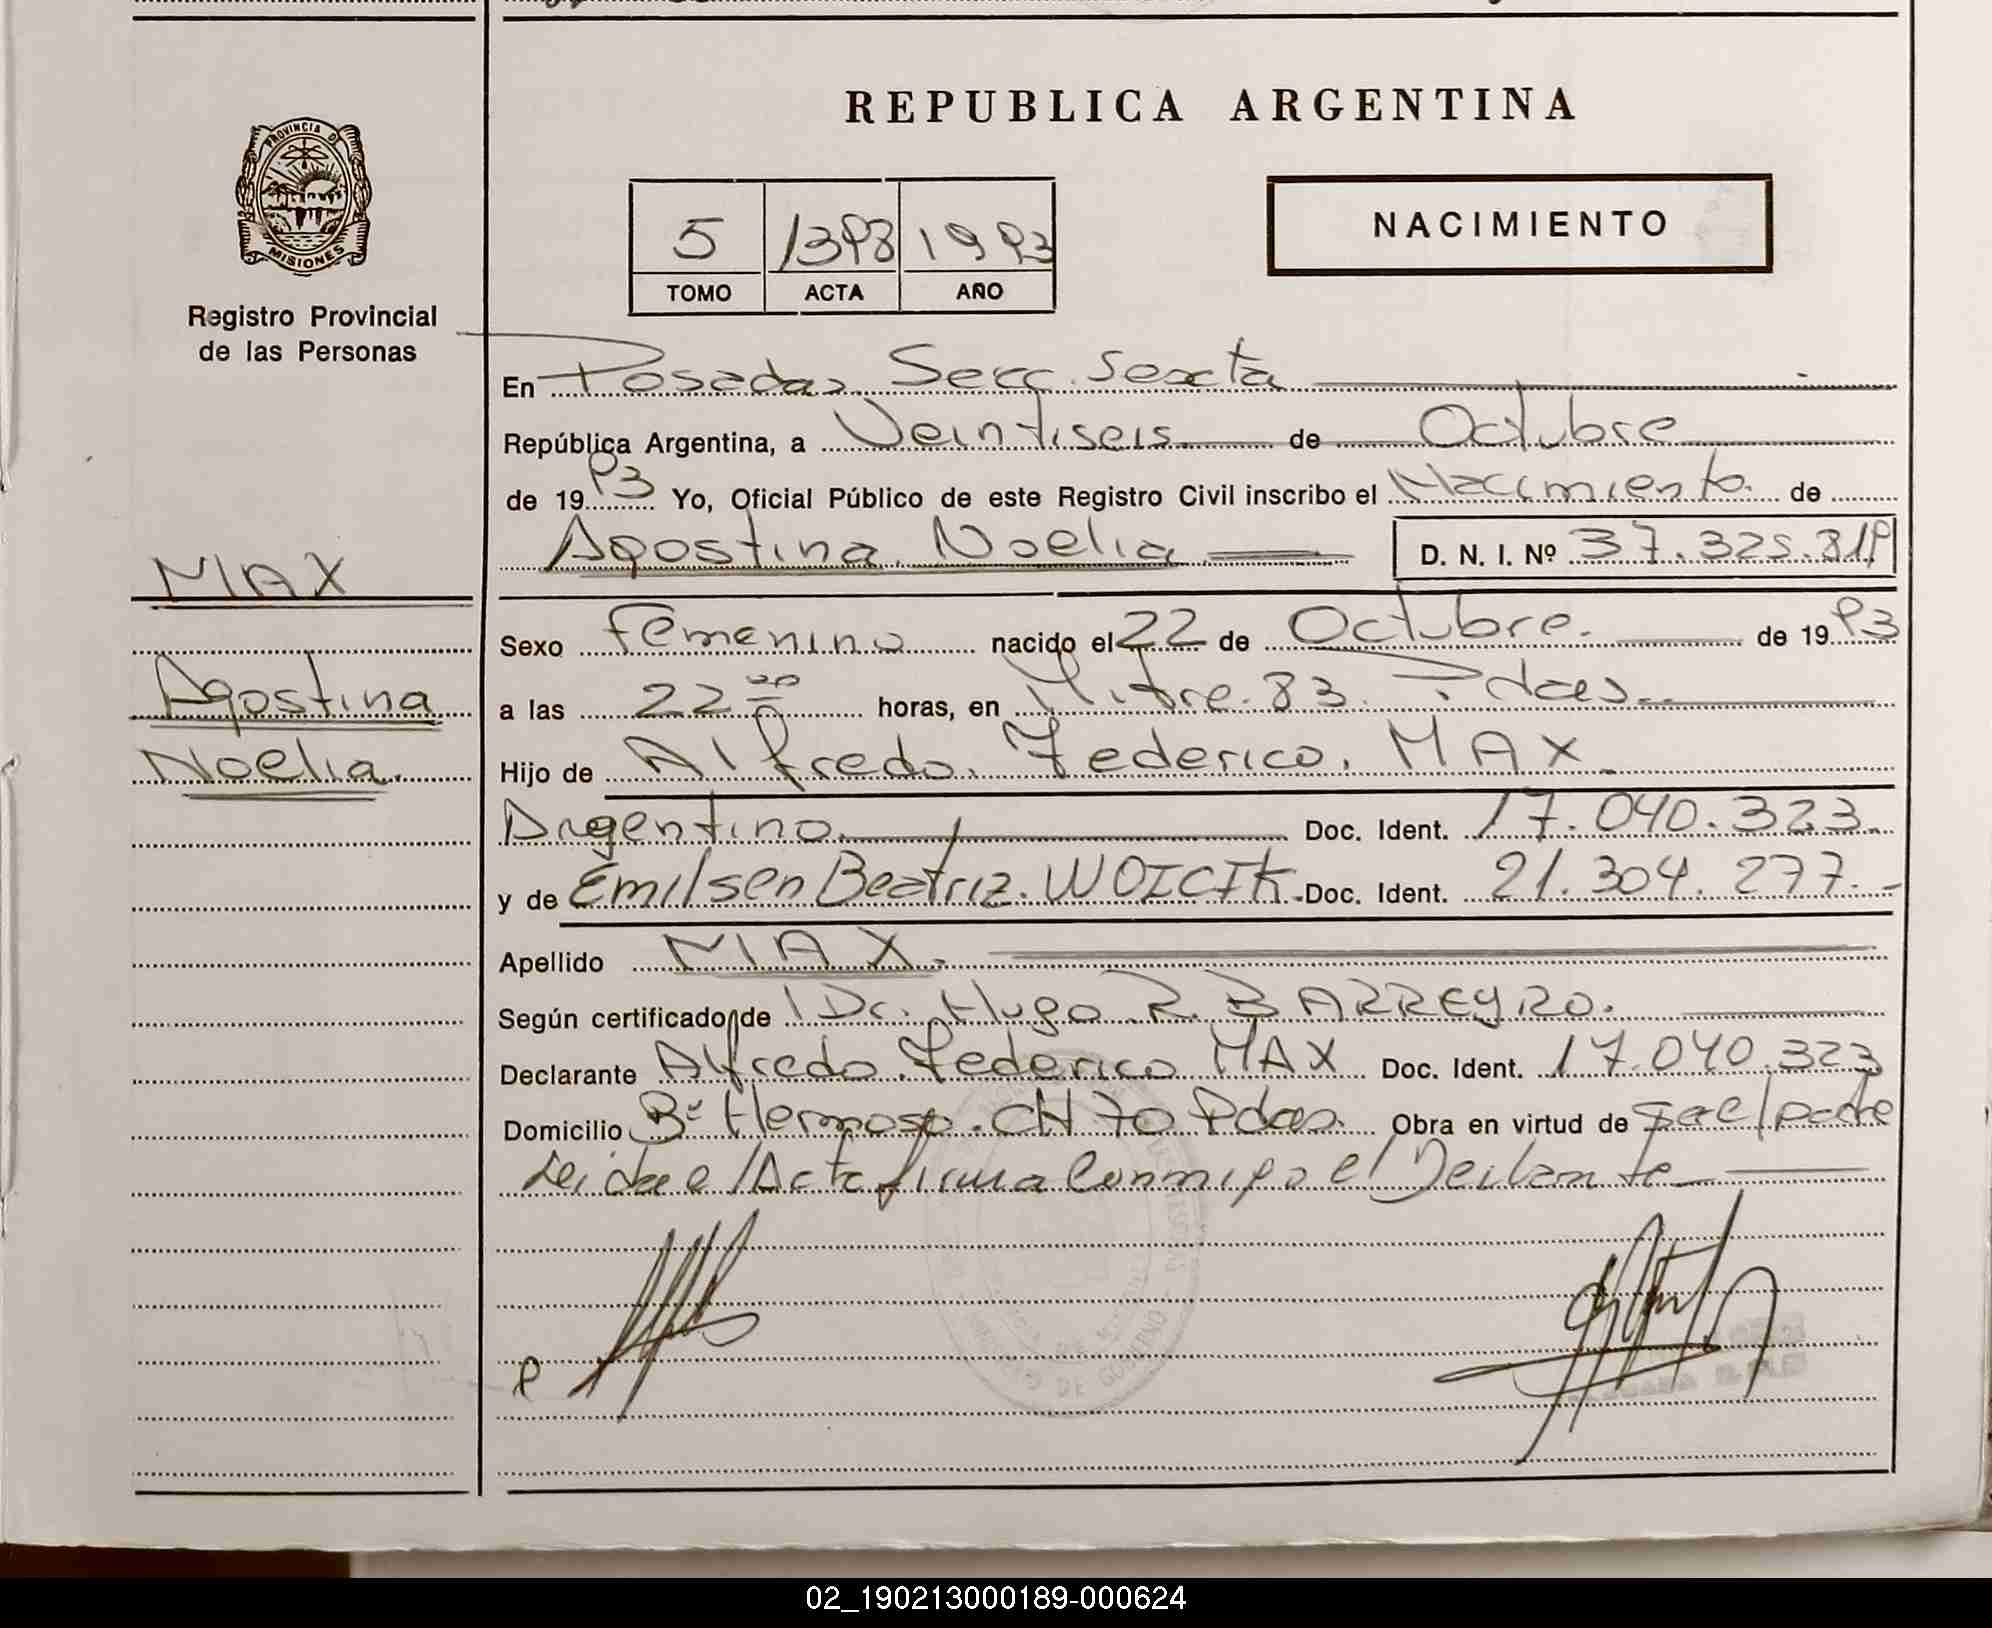 REPUBLICA ARGENTINA
PROVINCIA DE
MISIONES
Registro Provincial
de las Personas
NACIMIENTO
5 1398 1993
TOMO ACTA AÑO
En Posadas Secc. Sexta
República Argentina, a Veintiseis de Octubre
de 1993 Yo, Oficial Público de este Registro Civil inscribo el Nacimiento de
Agostina Noelia D. N. I. Nº 37.325.819
MAX
Agostina
Noelia
Sexo Femenino nacido el 22 de Octubre de 1993
a las 22 horas, en Mitre 83 Pdas
Hijo de Alfredo Federico MAX
Argentino Doc. Ident. 17.040.323
y de Emilsen Beatriz WOICIK Doc. Ident. 21.304.277
Apellido MAX
Según certificado de Dr. Hugo R. BARREYRO
Declarante Alfredo Federico MAX Doc. Ident. 17.040.323
Domicilio Bº Hermoso CH 70 Pdas. Obra en virtud de padre
Leida e/ Acta firma Conmigo el Declarante
02_190213000189-000624